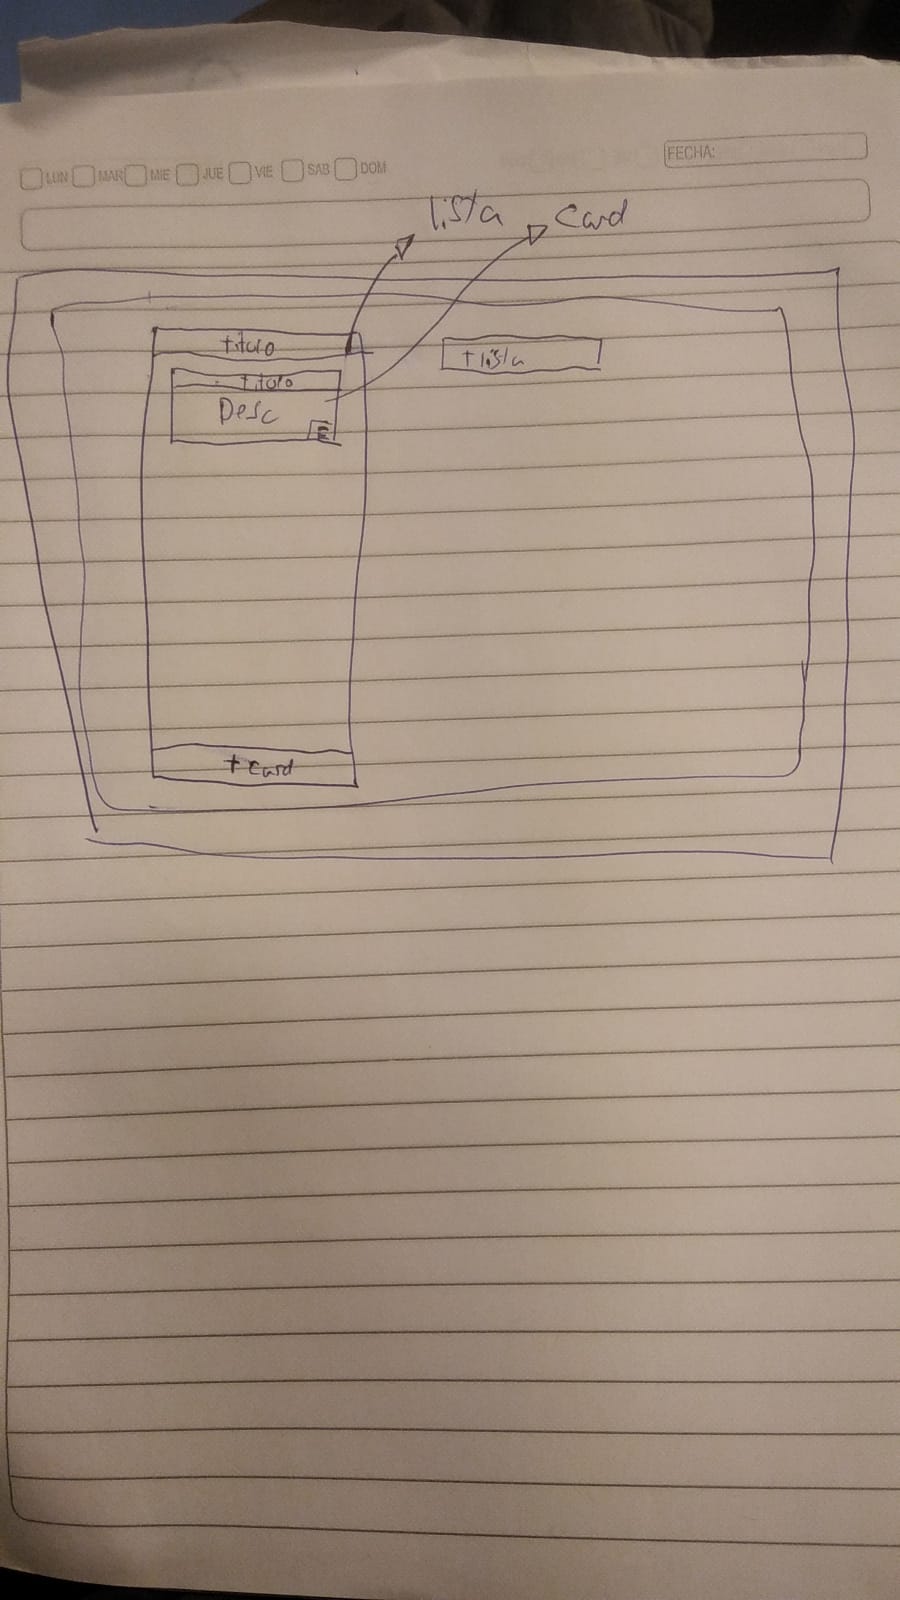 LUN MAR MIE JUE VIE SAB DOM
FECHA:
lista
Card
titulo
+ lista
titulo
Desc
E
+ Card